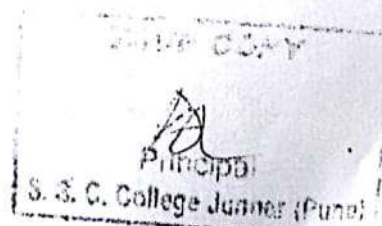 COPY
Principal
S. S. C. College Junnar (Pune)